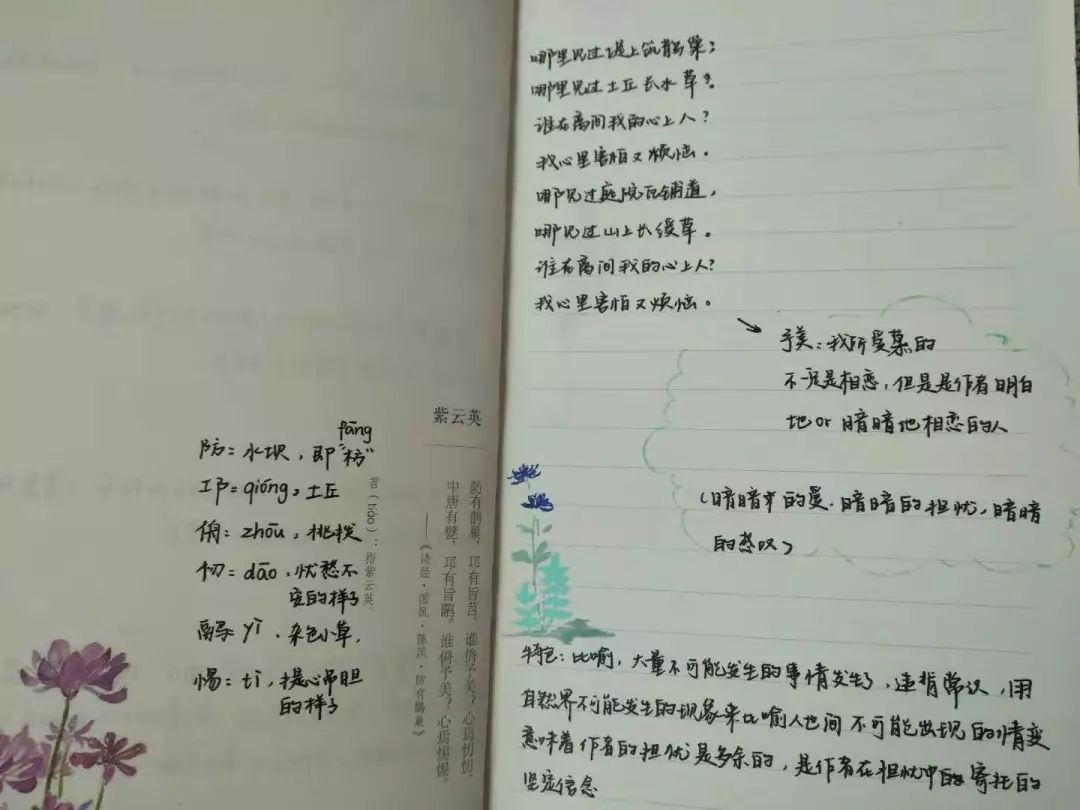 fāng
防：水坝，即“枋”
邛：qióng，土丘
侜：zhōu，挑拨
忉：dāo，忧愁不
定的样子
鹝：yì，杂色小草，
惕：tì，提心吊胆
的样子
紫云英
防有鹊巢，邛有旨苕。谁侜予美？心焉忉忉。
中唐有甓，邛有旨鹝。谁侜予美？心焉惕惕。
——《诗经·国风·陈风·防有鹊巢》
苕（tiáo）：指紫云英。
哪里见过堤上筑鹊巢；
哪里见过土丘长水草？
谁在离间我的心上人？
我心里害怕又烦恼。
哪见过庭院瓦铺道，
哪见过山上长绶草。
谁在离间我的心上人？
我心里害怕又烦恼。
予美：我所爱慕的
不一定是相恋，但是是作者明白
地or暗暗地相恋的人
（暗暗的爱，暗暗的担忧，暗暗
的愁叹）
特色：比喻，大量不可能发生的事情发生了，违背常识，用
自然界不可能发生的现象来比喻人世间不可能出现的情变
意味着作者的担忧是多余的，是作者在担忧中的寄托的
坚定信念